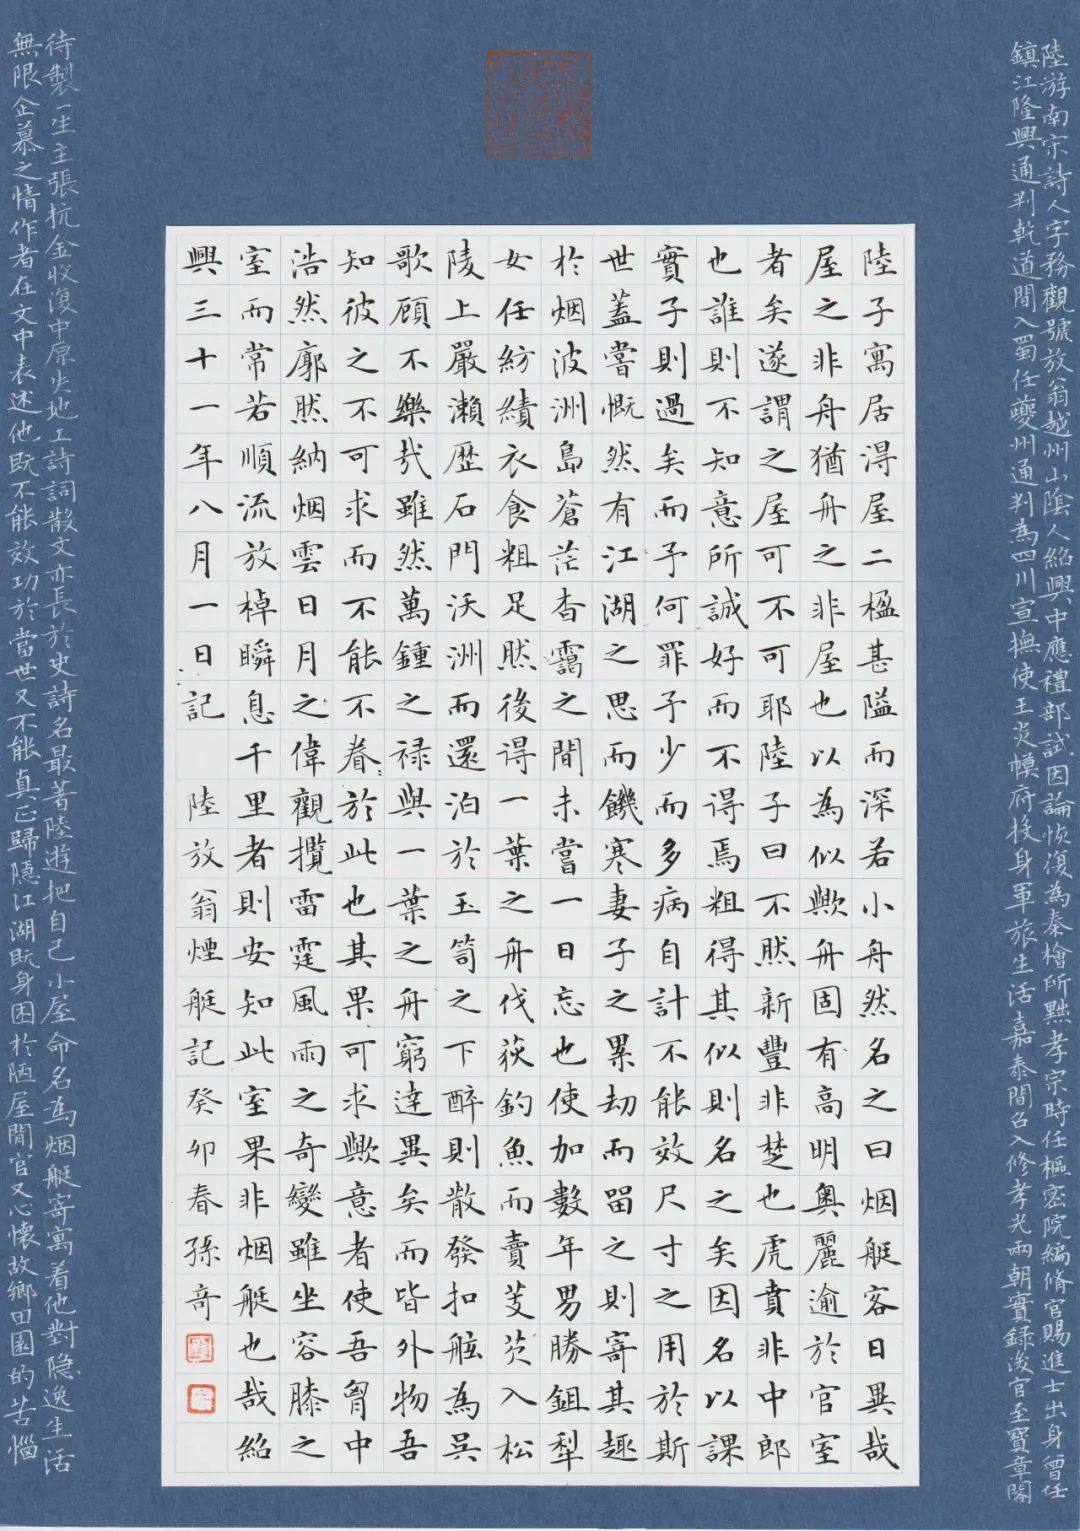 陸游南宋詩人字務觀號放翁越州山陰人紹興中應禮部試因論恢復為秦檜所黜孝宗時任樞密院編脩官賜進士出身曾任
鎮江隆興通判乾道間入蜀任夔州通判為四川宣撫使王炎幕府投身軍旅生活嘉泰間召入修孝光兩朝實錄後官至寶章閣
陸子寓居得屋二楹甚隘而深若小舟然名之曰烟艇客曰異哉
屋之非舟猶舟之非屋也以為似歟舟固有高明奧麗逾於官室
者矣遂謂之屋可不可耶陸子曰不然新豐非楚也虎賁非中郎
也誰則不知意所誠好而不得焉粗得其似則名之矣因名以課
實子則過矣而予何罪予少而多病自計不能效尺寸之用於斯
世蓋嘗慨然有江湖之思而饑寒妻子之累劫而留之則寄其趣
於烟波洲島蒼茫杳靄之間未嘗一日忘也使加數年男勝鉏犁
女任紡績衣食粗足然後得一葉之舟伐荻釣魚而賣芰芡入松
陵上嚴瀨歷石門沃洲而還泊於玉笥之下醉則散發扣舷為吳
歌顧不樂哉雖然萬鍾之祿與一葉之舟窮達異矣而皆外物吾
知彼之不可求而不能不眷於此也其果可求歟意者使吾胷中
浩然廓然納烟雲日月之偉觀攬雷霆風雨之奇變雖坐容膝之
室而常若順流放棹瞬息千里者則安知此室果非烟艇也哉紹
興三十一年八月一日記 陸放翁煙艇記癸卯春孫奇
待製一生主張抗金收復中原失地工詩詞散文亦長於史詩名最著陸遊把自己小屋命名為烟艇寄寓着他對隐逸生活
無限企慕之情作者在文中表述他既不能效功於當世又不能真正歸隱江湖既身困於陋屋閒官又心懷故鄉田園的苦惱